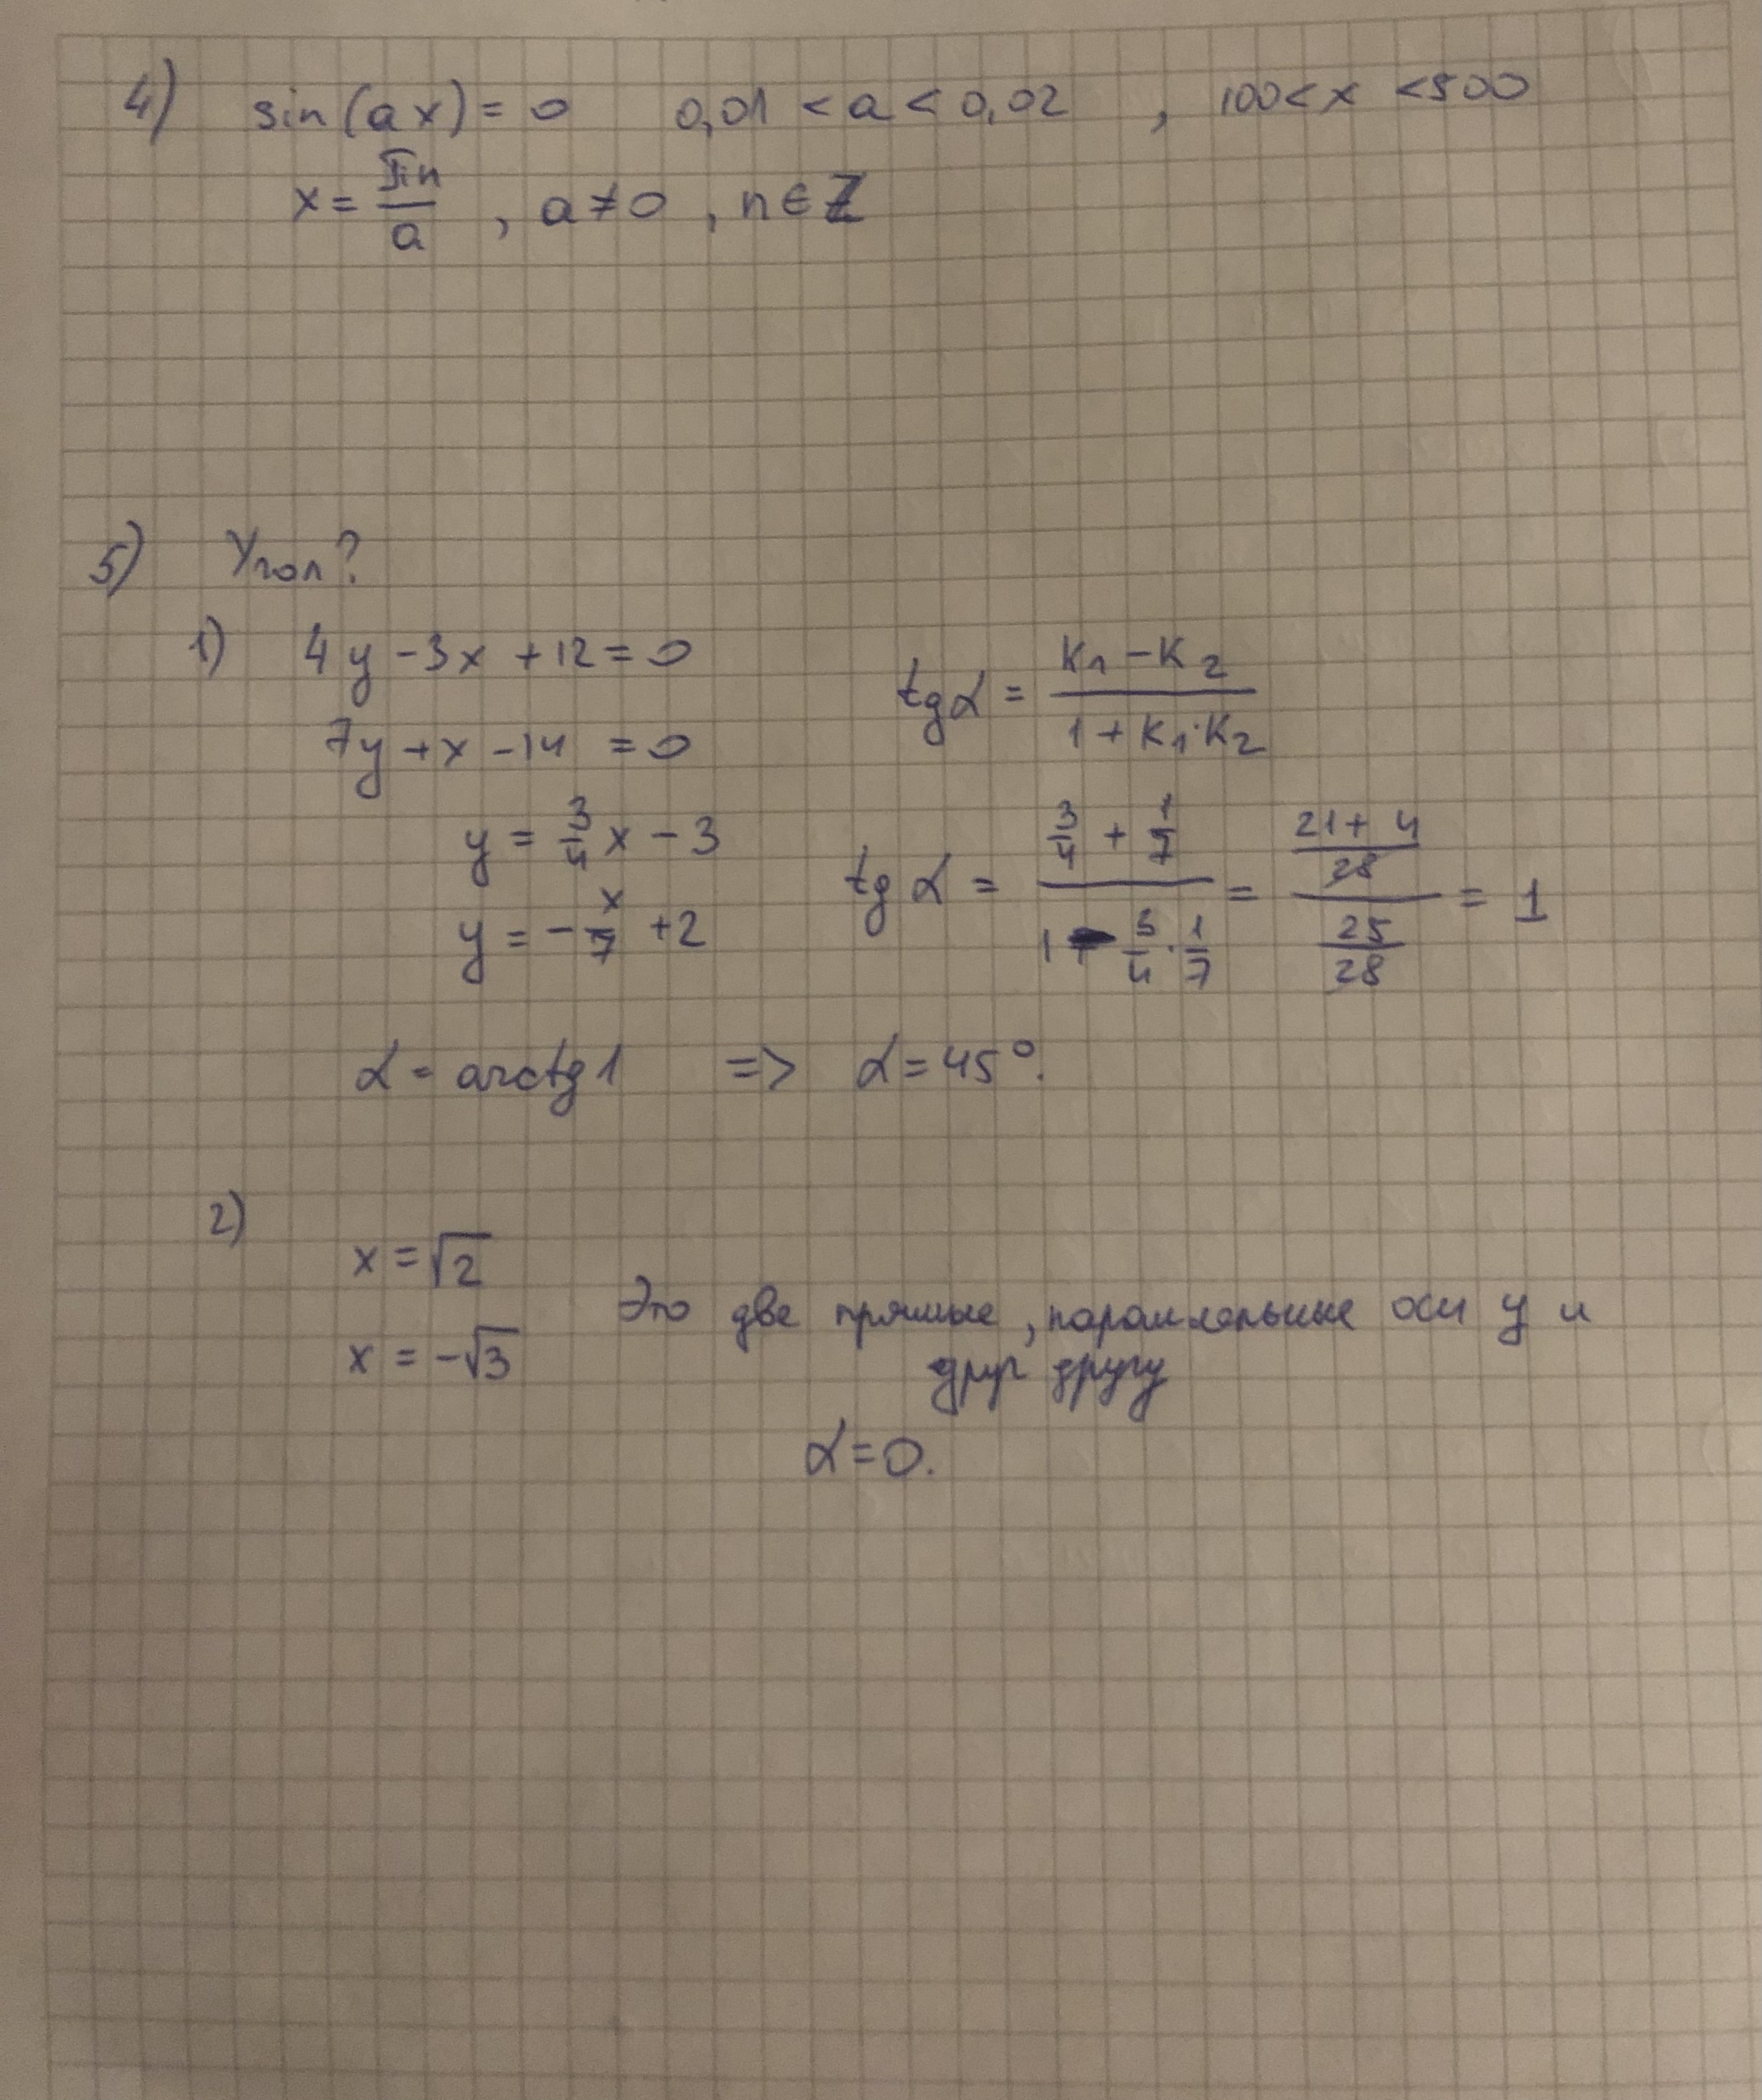 4) sin(ax) = 0   0,01 < a < 0,02 , 100 < x < 500
x = πn/a , a ≠ 0 , n ∈ Z
5) Угол?
1) 4y - 3x + 12 = 0
7y + x - 14 = 0
tg α = (K₁ - K₂)/(1 + K₁·K₂)
y = 3/4 x - 3
y = - x/7 + 2
tg α = (3/4 + 1/7)/(1 - 3/4 · 1/7) = ((21 + 4)/28)/(25/28) = 1
α = arctg 1 => α = 45°.
2)
x = √2
x = -√3
Это две прямые, параллельные оси y и
друг другу
α = 0.